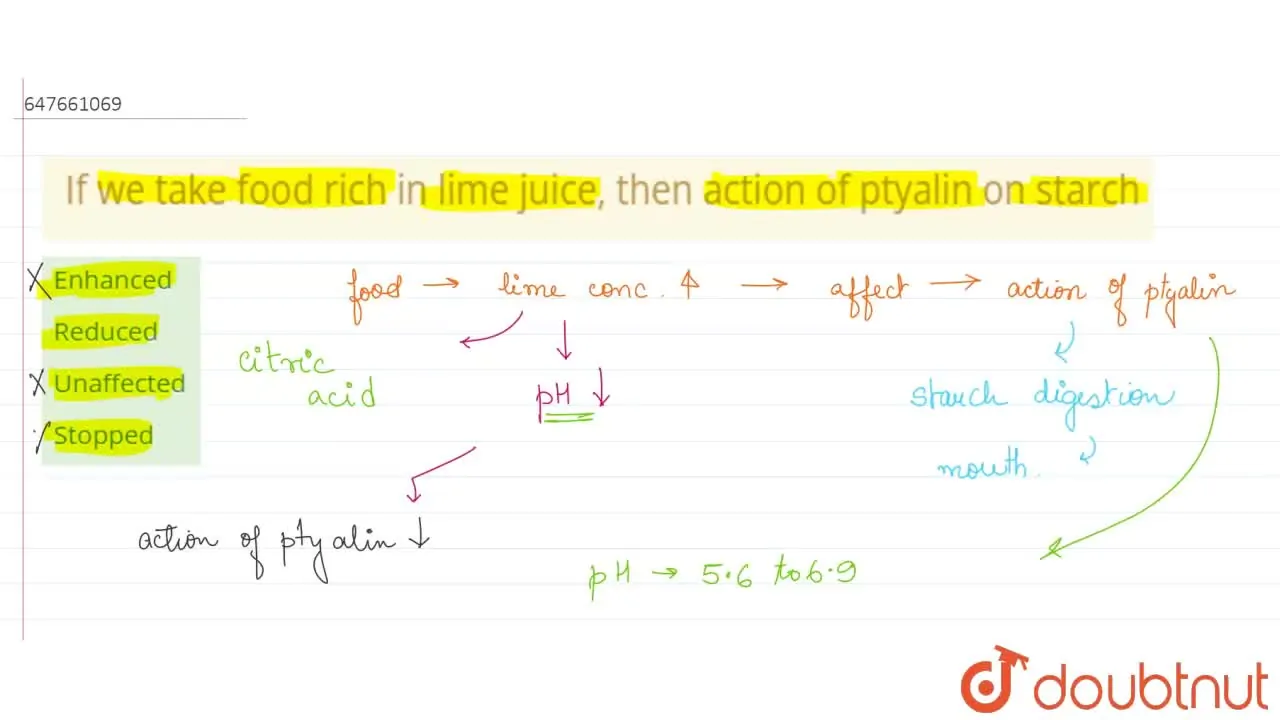 647661069
If we take food rich in lime juice, then action of ptyalin on starch
Enhanced
Reduced
Unaffected
Stopped
food → lime conc. ↑ → affect → action of ptyalin
citric
acid
pH ↓
starch digestion
mouth.
action of ptyalin ↓
pH → 5.6 to 6.9
doubtnut